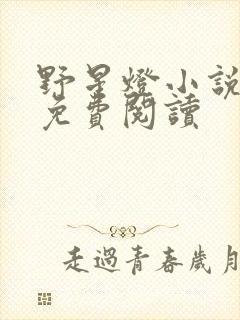 野星燈小説
免費閱讀
走過青春歲月